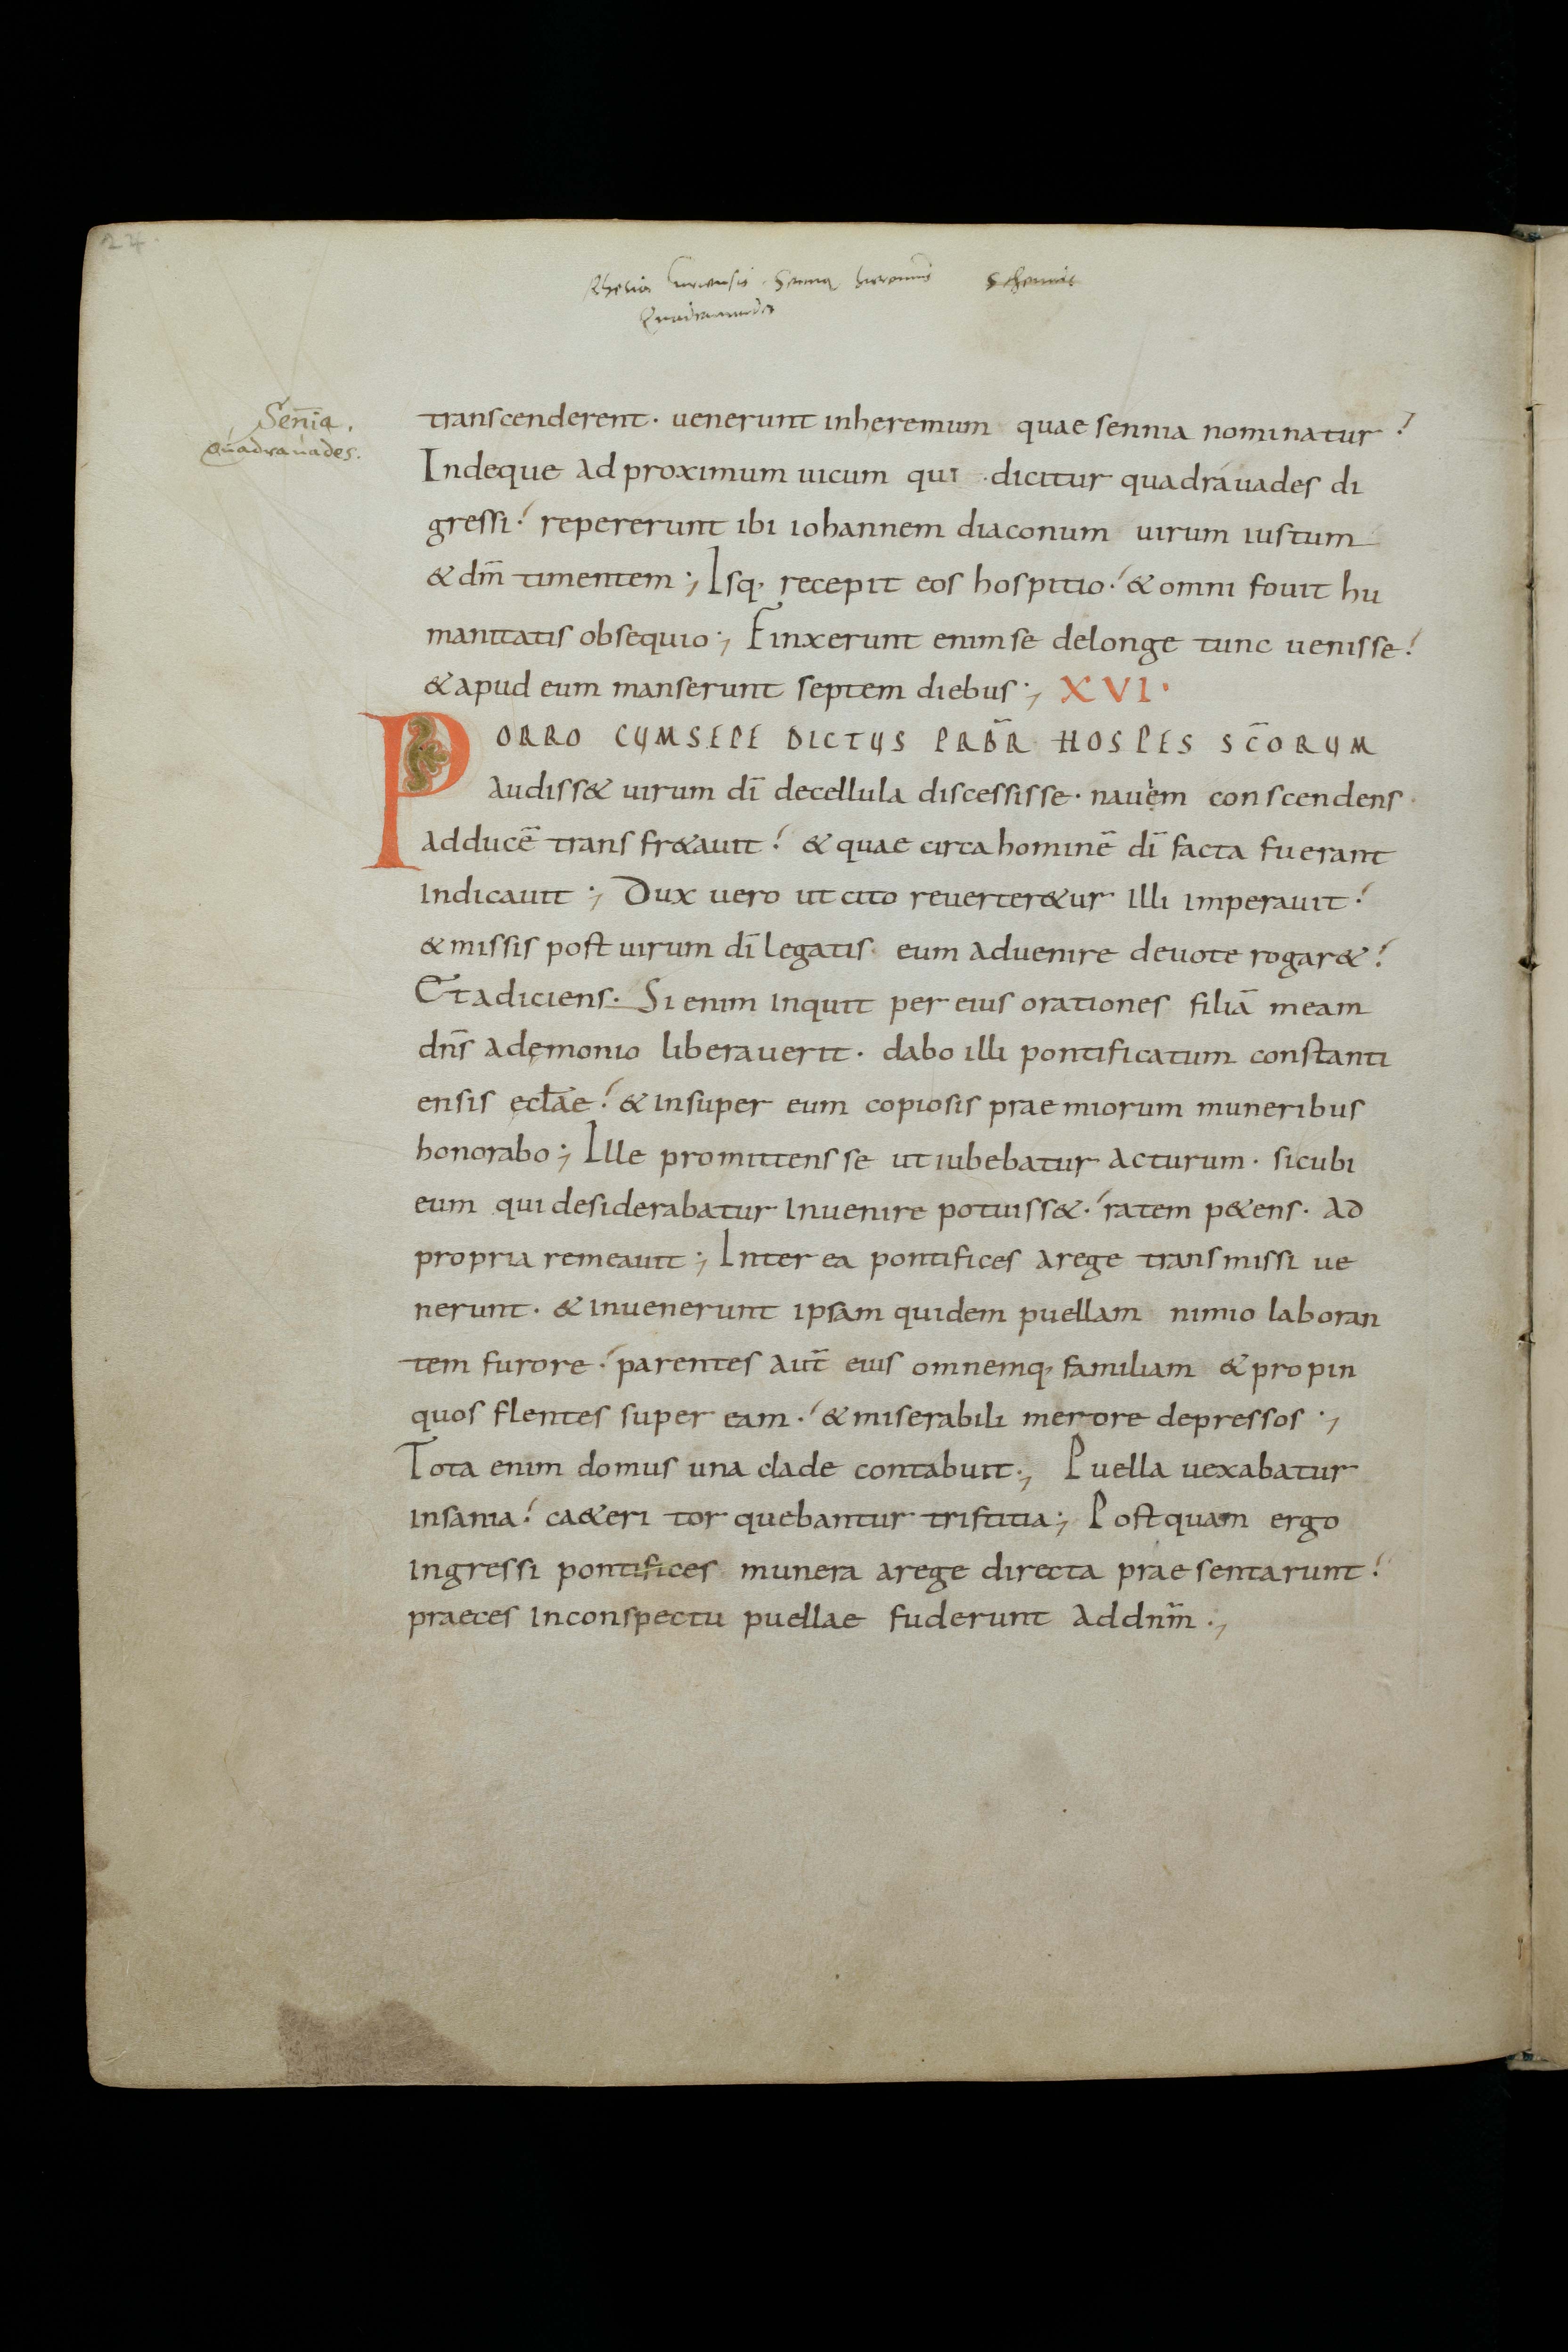 24.
Rhetia Curiensis. Sennia
Sennia.
Quadrauades.
transcenderent. uenerunt inheremum quae sennia nominatur.
Indeque ad proximum uicum qui dicitur quadráuades di
gressi. repererunt ibi iohannem diaconum uirum iustum
& dm̄ timentem; Isq; recepit eos hospitio. & omni fouit hu
manitatis obsequio; Finxerunt enim se delonge tunc uenisse.
& apud eum manserunt septem diebus; XVI.
PORRO CUM SEPE DICTUS PRB̄R HOSPES SC̄ORUM
audiss& uirum dī decellula discessisse. nauem conscendens
ad ducē transfr&auit. & quae circa hominē dī facta fuerant
indicauit; Dux uero ut cito reuerter&ur illi imperauit.
& missis post uirum dī legatis eum aduenire deuote rogar&.
Et adiciens. Si enim inquit per eius orationes filiā meam
dn̄s ademonio liberauerit. dabo illi pontificatum constanti
ensis ęcl̄ae. & insuper eum copiosis praemiorum muneribus
honorabo; Ille promittens se ut iubebatur acturum. sicubi
eum qui desiderabatur inuenire potuiss&. ratem p&ens. ad
propria remeauit; Inter ea pontifices arege transmissi ue
nerunt. & inuenerunt ipsam quidem puellam nimio laboran
tem furore. parentes aut̄ eius omnemq; familiam & propin
quos flentes super eam. & miserabili merore depressos;
Tota enim domus una clade contabuit; Puella uexabatur
insania. ca&eri torquebantur tristitia; Postquam ergo
ingressi pontifices munera arege directa praesentarunt.
praeces inconspectu puellae fuderunt ad dnm̄;